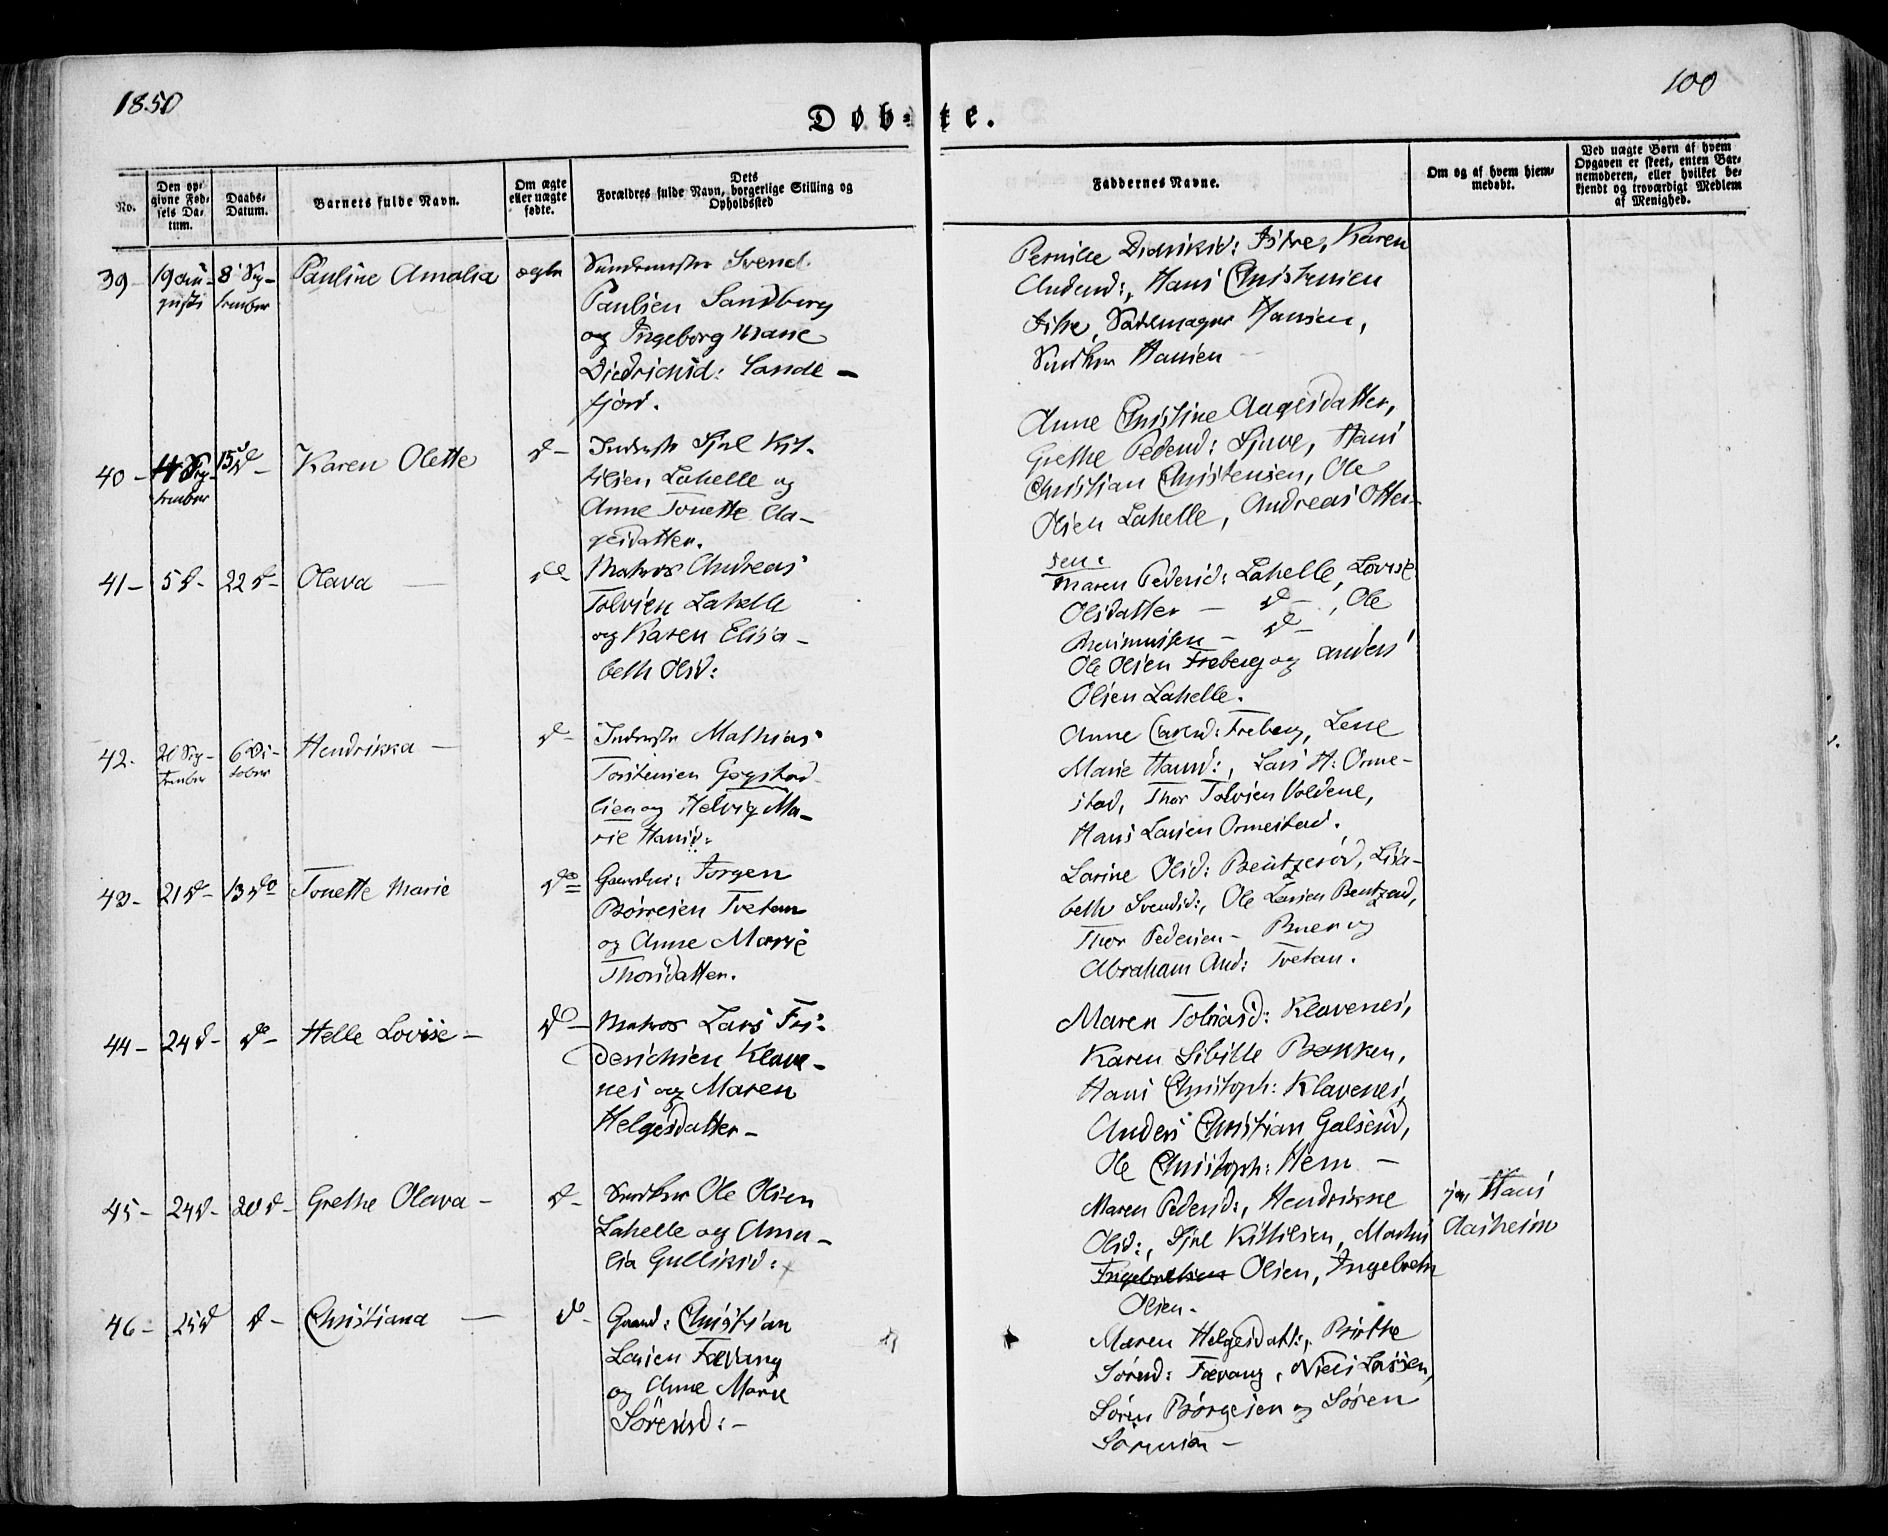 1850
100
Døb-
te.
No.
Den op-
givne Fød-
sels Da-
tum.
Daabs-
Datum.
Barnets fulde Navn.
Om ægte
eller uægte
fødte.
Dets
Forældres fulde Navn, borgerlige Stilling og
Opholdssted
Faddernes Navne.
Om og af hvem hjem-
medøbt.
Ved uægte Børn af hvem
Opgaven er skeet, enten Bar-
nemoderen, eller hvilket be-
kjendt og troværdigt Medlem
af Menighed.
39-
19 Au-
gusti
8 Sep-
tember
Pauline Amalia
ægte
Svend
Paulsen Sandberg
og Ingeborg Marie
Diedrichsd: Sande-
fjord.
Pernille Didriksd: Karen
Andersd:, Hans Christensen
Sadelmager Hansen,
Hansen
40-
4 Sep-
tember
15 do-
Karen Olette
do-
Kit-
tilsen Lahelle og
Anne Tonette Aa-
gesdatter.
Anne Christine Aagesdatter,
Grethe Pedersd: Hans
Christian Christensen, Ole
Olsen Lahelle, Andreas Otter-
sen:
41-
5 d-
22 d-
Olava
do-
Matros Andreas
Tolvsen Lahelle
og Karen Elisa-
beth Olsd:
Maren Pedersd: Lahelle, Lovise
Olsdatter - do -, Ole
- do -
Ole Olsen Freberg og Anders
Olsen Lahelle.
42.
20 Sep-
tember
6 Oc-
tober
Hendrikka -
d-
Mathias
Torstensen Gogstad
lien og Helvig Ma-
rie Hansd:
Anne Freberg, Lene
Marie Hansd:, Lars H: Orme-
stad, Thor Tolvsen Voldene,
Hans Larsen Ormestad.
43-
21 d-
13 do
Tonette Marie
do
Gaardm: Jørgen
Børresen Tvetan
og Anne Marie
Thorsdatter.
Larine Olsd: Bentzerød, Lisa-
beth Svendsd:, Ole Larsen Bentzrød,
Thor Pedersen - Buer og
Abraham And: Tvetan.
44-
24 d-
do-
Helle Lovise -
do-
Matros Lars Fri-
derichsen Klave-
nes og Maren
Helgesdatter -
Maren Tobiasd: Klavenes,
Karen Sibille Bakken,
Hans Christoph: Klavenes,
Anders Christian Galserød,
Ole Christoph: Hem -
45-
24 d-
20 d-
Grethe Olava -
d-
Ole Olsen
Lahelle og Ama-
lia Gulliksd:
Maren Pedersd:, Hendrikke
Olsd:, Kittilsen, Mathis
Ingebretsen Olsen, Ingebreth
Olsen.
ja, Hans
Aasheim
46-
25 d
d-
Christiana
do-
Gaard: Christian
Larsen Fævang
og Anne Marie
Sørensd: -
Maren Helgesdatt:, Birthe
Sørensd: Fævang, Niels Larsen,
Søren Børgesen og Søren
Sørensen -